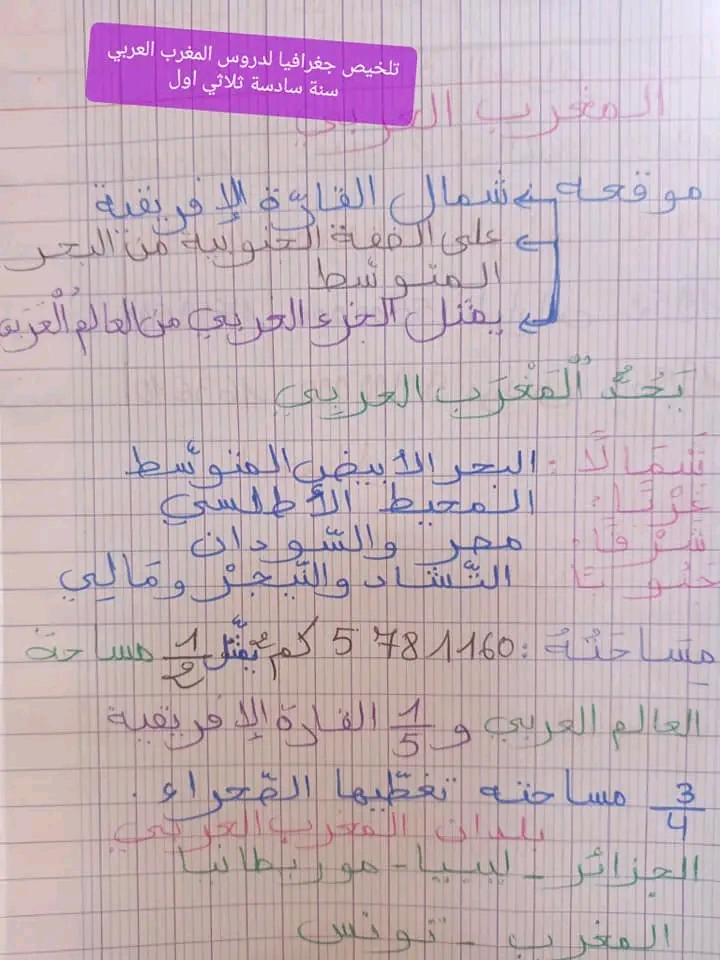 تلخيص جغرافيا لدروس المغرب العربي
سنة سادسة ثلاثي اول
المغرب العربي
موقعه شمال القارّة الإفريقية
على الضفة الجنوبية من البحر
المتوسّط
يمثل الجزء الغربي من العالم العربي
يَحُدُّ الْمَغْرَب العربي
شَمَالًا : البحر الأبيض المتوسّط
غَرْبًا : المحيط الأطلسي
شَرْقًا : مصر والسّودان
جنوبًا التّشاد والنّيجرْ ومَالِي
مِسَاحَتُهُ : 5 781160 كم² يُمثّل 1/2 مساحة
العالم العربي و 1/5 القارة الإفريقية
3/4 مساحته تغطّيها الصّحراء .
بلدان المغرب العربي
الجزائر - ليبيا - موريطانيا
المغرب - تونس